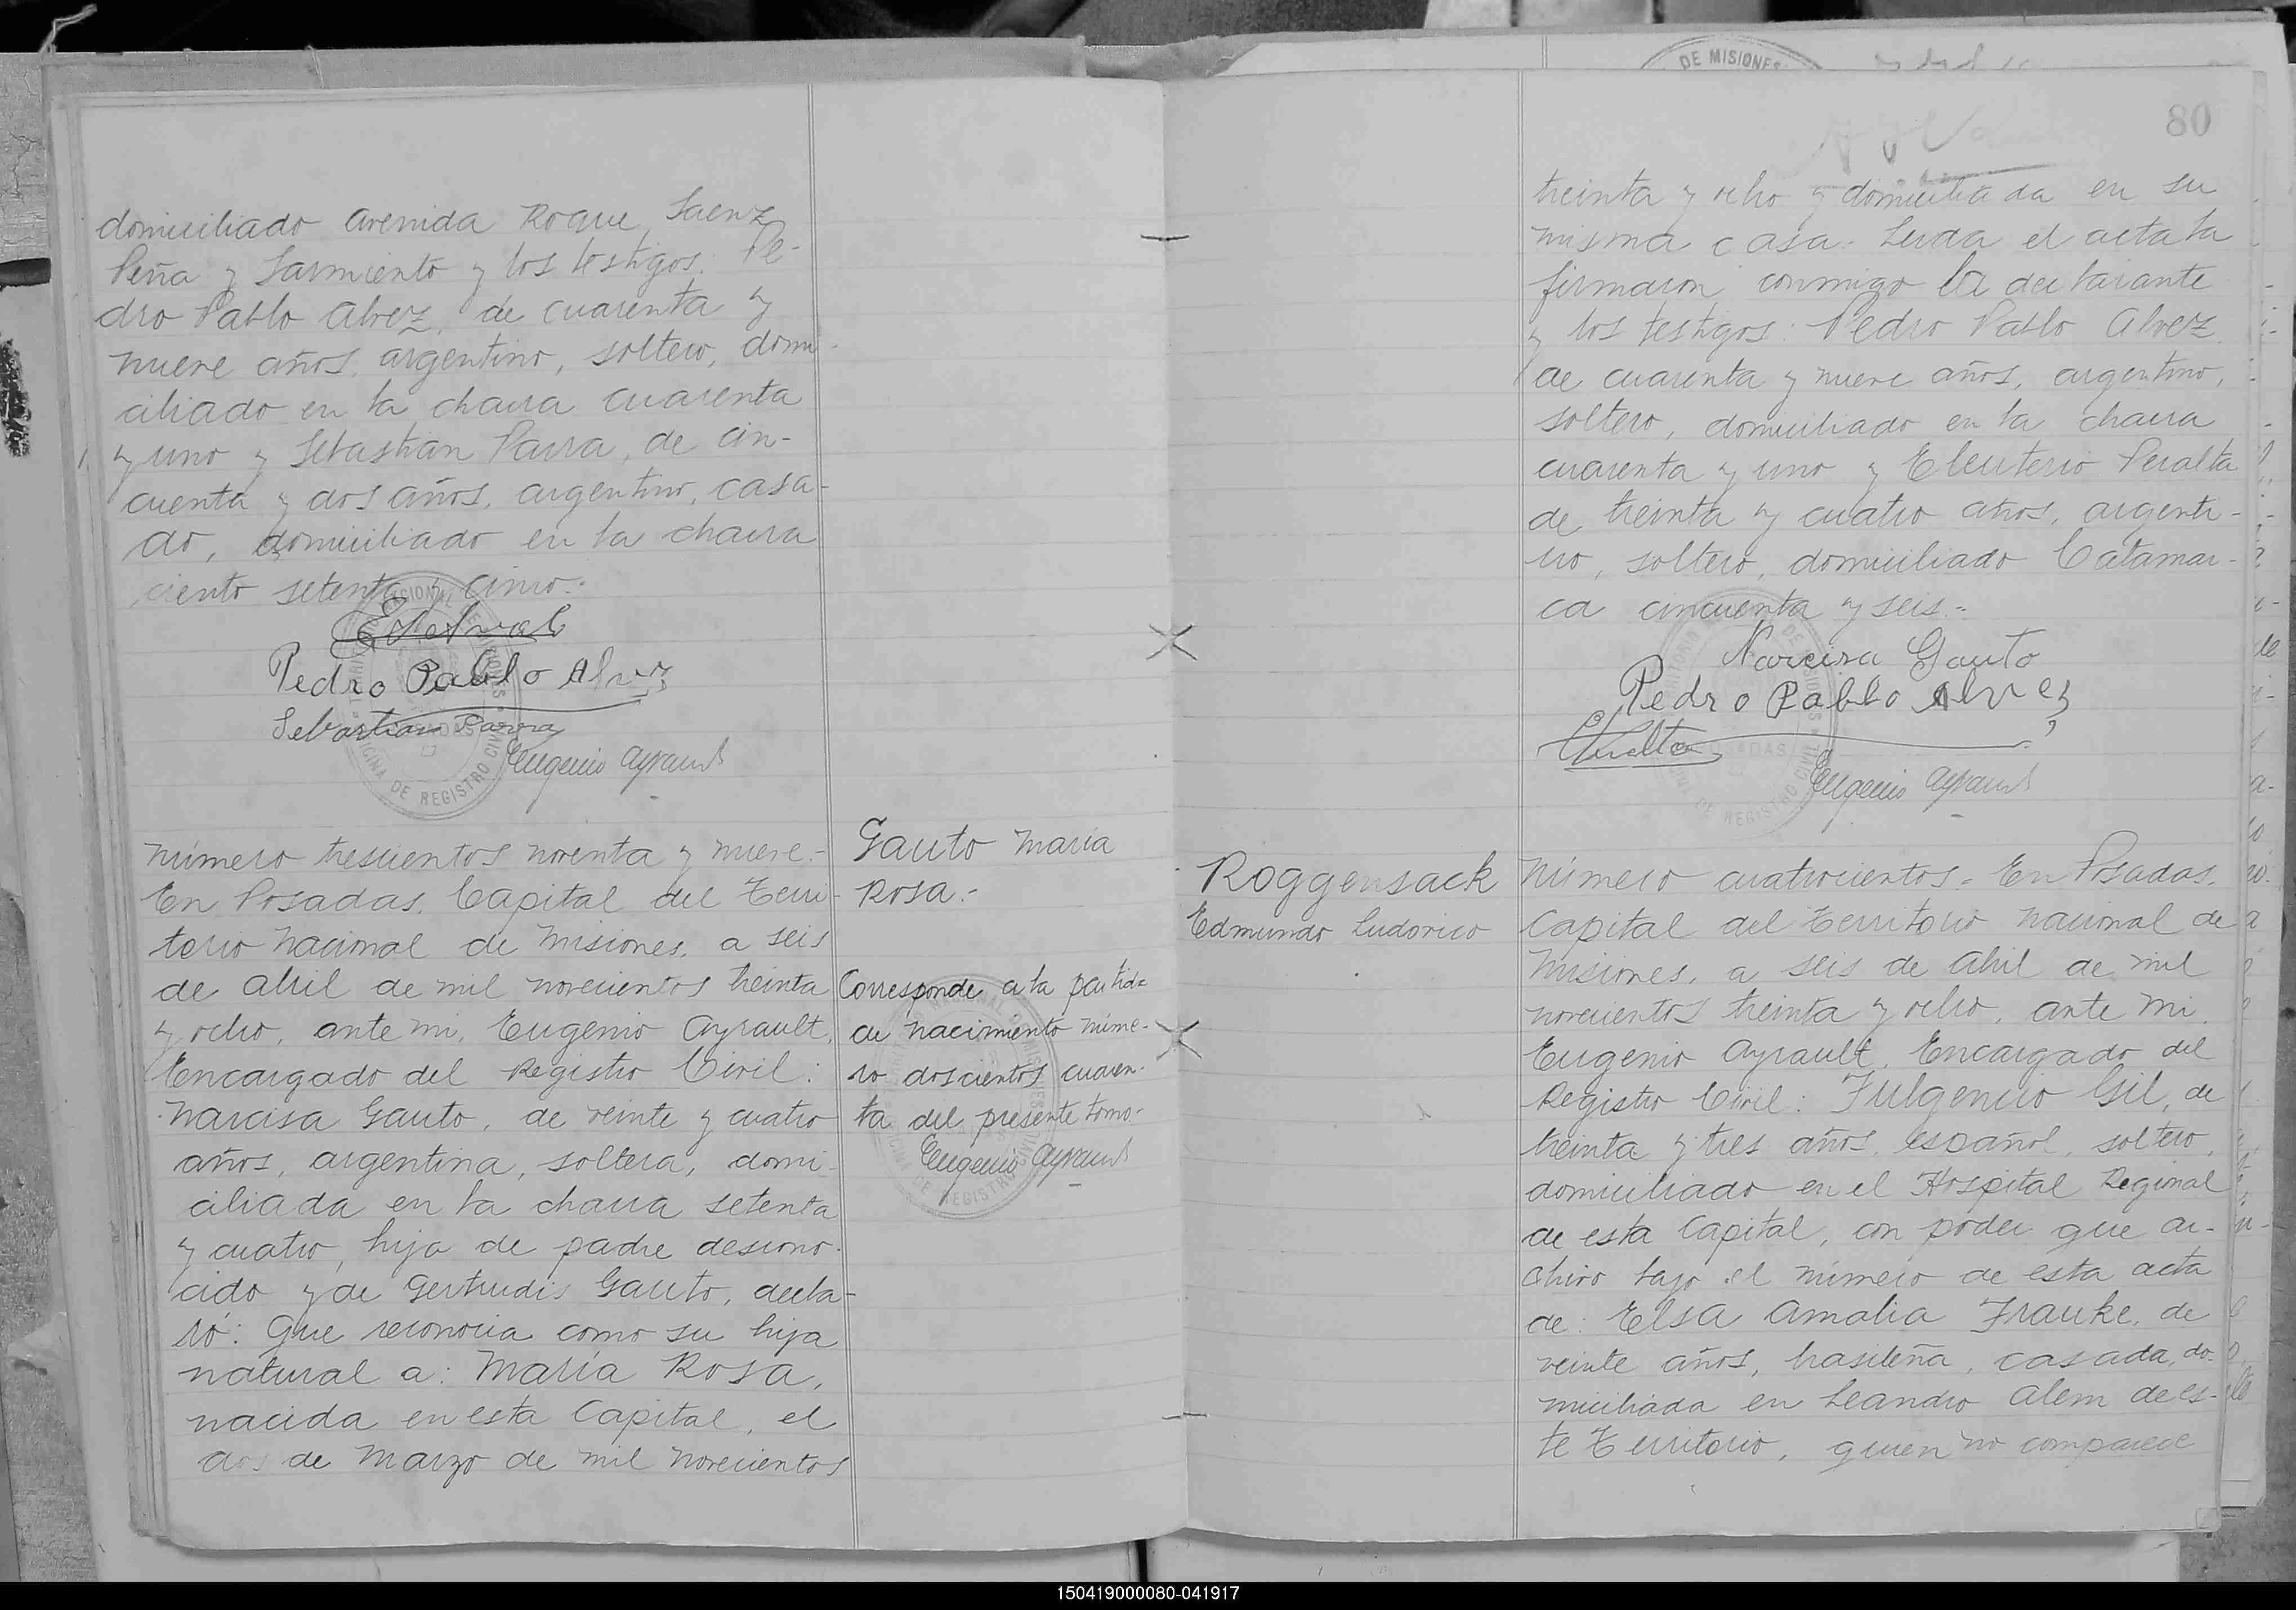 domiciliado Avenida Roque Saenz
Peña y Sarmiento y los testigos: Pe-
dro Pablo Alvez, de cuarenta y
nueve años, argentino, soltero, domi-
ciliado en la chacra cuarenta
y uno y Sebastián Parra, de cin-
cuenta y dos años, argentino, casa-
do, domiciliado en la chacra
ciento setenta y cinco.-
Pedro Pablo Alvez
Sebastian Parra
Eugenio Ayrault
OFICINA DE REGISTRO CIVIL
Número trescientos noventa y nueve.-
En Posadas, Capital del Terri-
torio Nacional de Misiones, a seis
de Abril de mil novecientos treinta
y ocho, ante mi, Eugenio Ayrault,
Encargado del Registro Civil:
Narcisa Gauto, de veinte y cuatro
años, argentina, soltera, domi-
ciliada en la chacra setenta
y cuatro, hija de padre descono-
cido y de Gertrudis Gauto, decla-
ró: Que reconocia como su hija
natural a: María Rosa,
nacida en esta Capital, el
dos de Marzo de mil novecientos
Gauto María
Rosa.-
Corresponde a la partida
de nacimiento núme-
ro doscientos cuaren-
ta del presente tomo.-
Eugenio Ayrault
DE MISIONES
80
treinta y ocho y domiciliada en su
misma casa. Leida el acta la
firmaron conmigo la declarante
y los testigos: Pedro Pablo Alvez,
de cuarenta y nueve años, argentino,
soltero, domiciliado en la chacra
cuarenta y uno y Eleuterio Peralta
de treinta y cuatro años, argenti-
no, soltero, domiciliado Catamar-
ca cincuenta y seis.-
Narcisa Gauto
Pedro Pablo Alvez
EPeralta
Eugenio Ayrault
Roggensack
Edmundo Ludovico
Número cuatrocientos.- En Posadas,
Capital del Territorio Nacional de
Misiones, a seis de Abril de mil
novecientos treinta y ocho, ante mi,
Eugenio Ayrault, Encargado del
Registro Civil: Fulgencio Gil, de
treinta y tres años, español, soltero,
domiciliado en el Hospital Regional
de esta Capital, con poder que ar-
chivo bajo el número de esta acta
de: Elsa Amalia Franke, de
veinte años, brasileña, casada, do-
miciliada en Leandro Alem de es-
te Territorio, quien no comparece
150419000080-041917